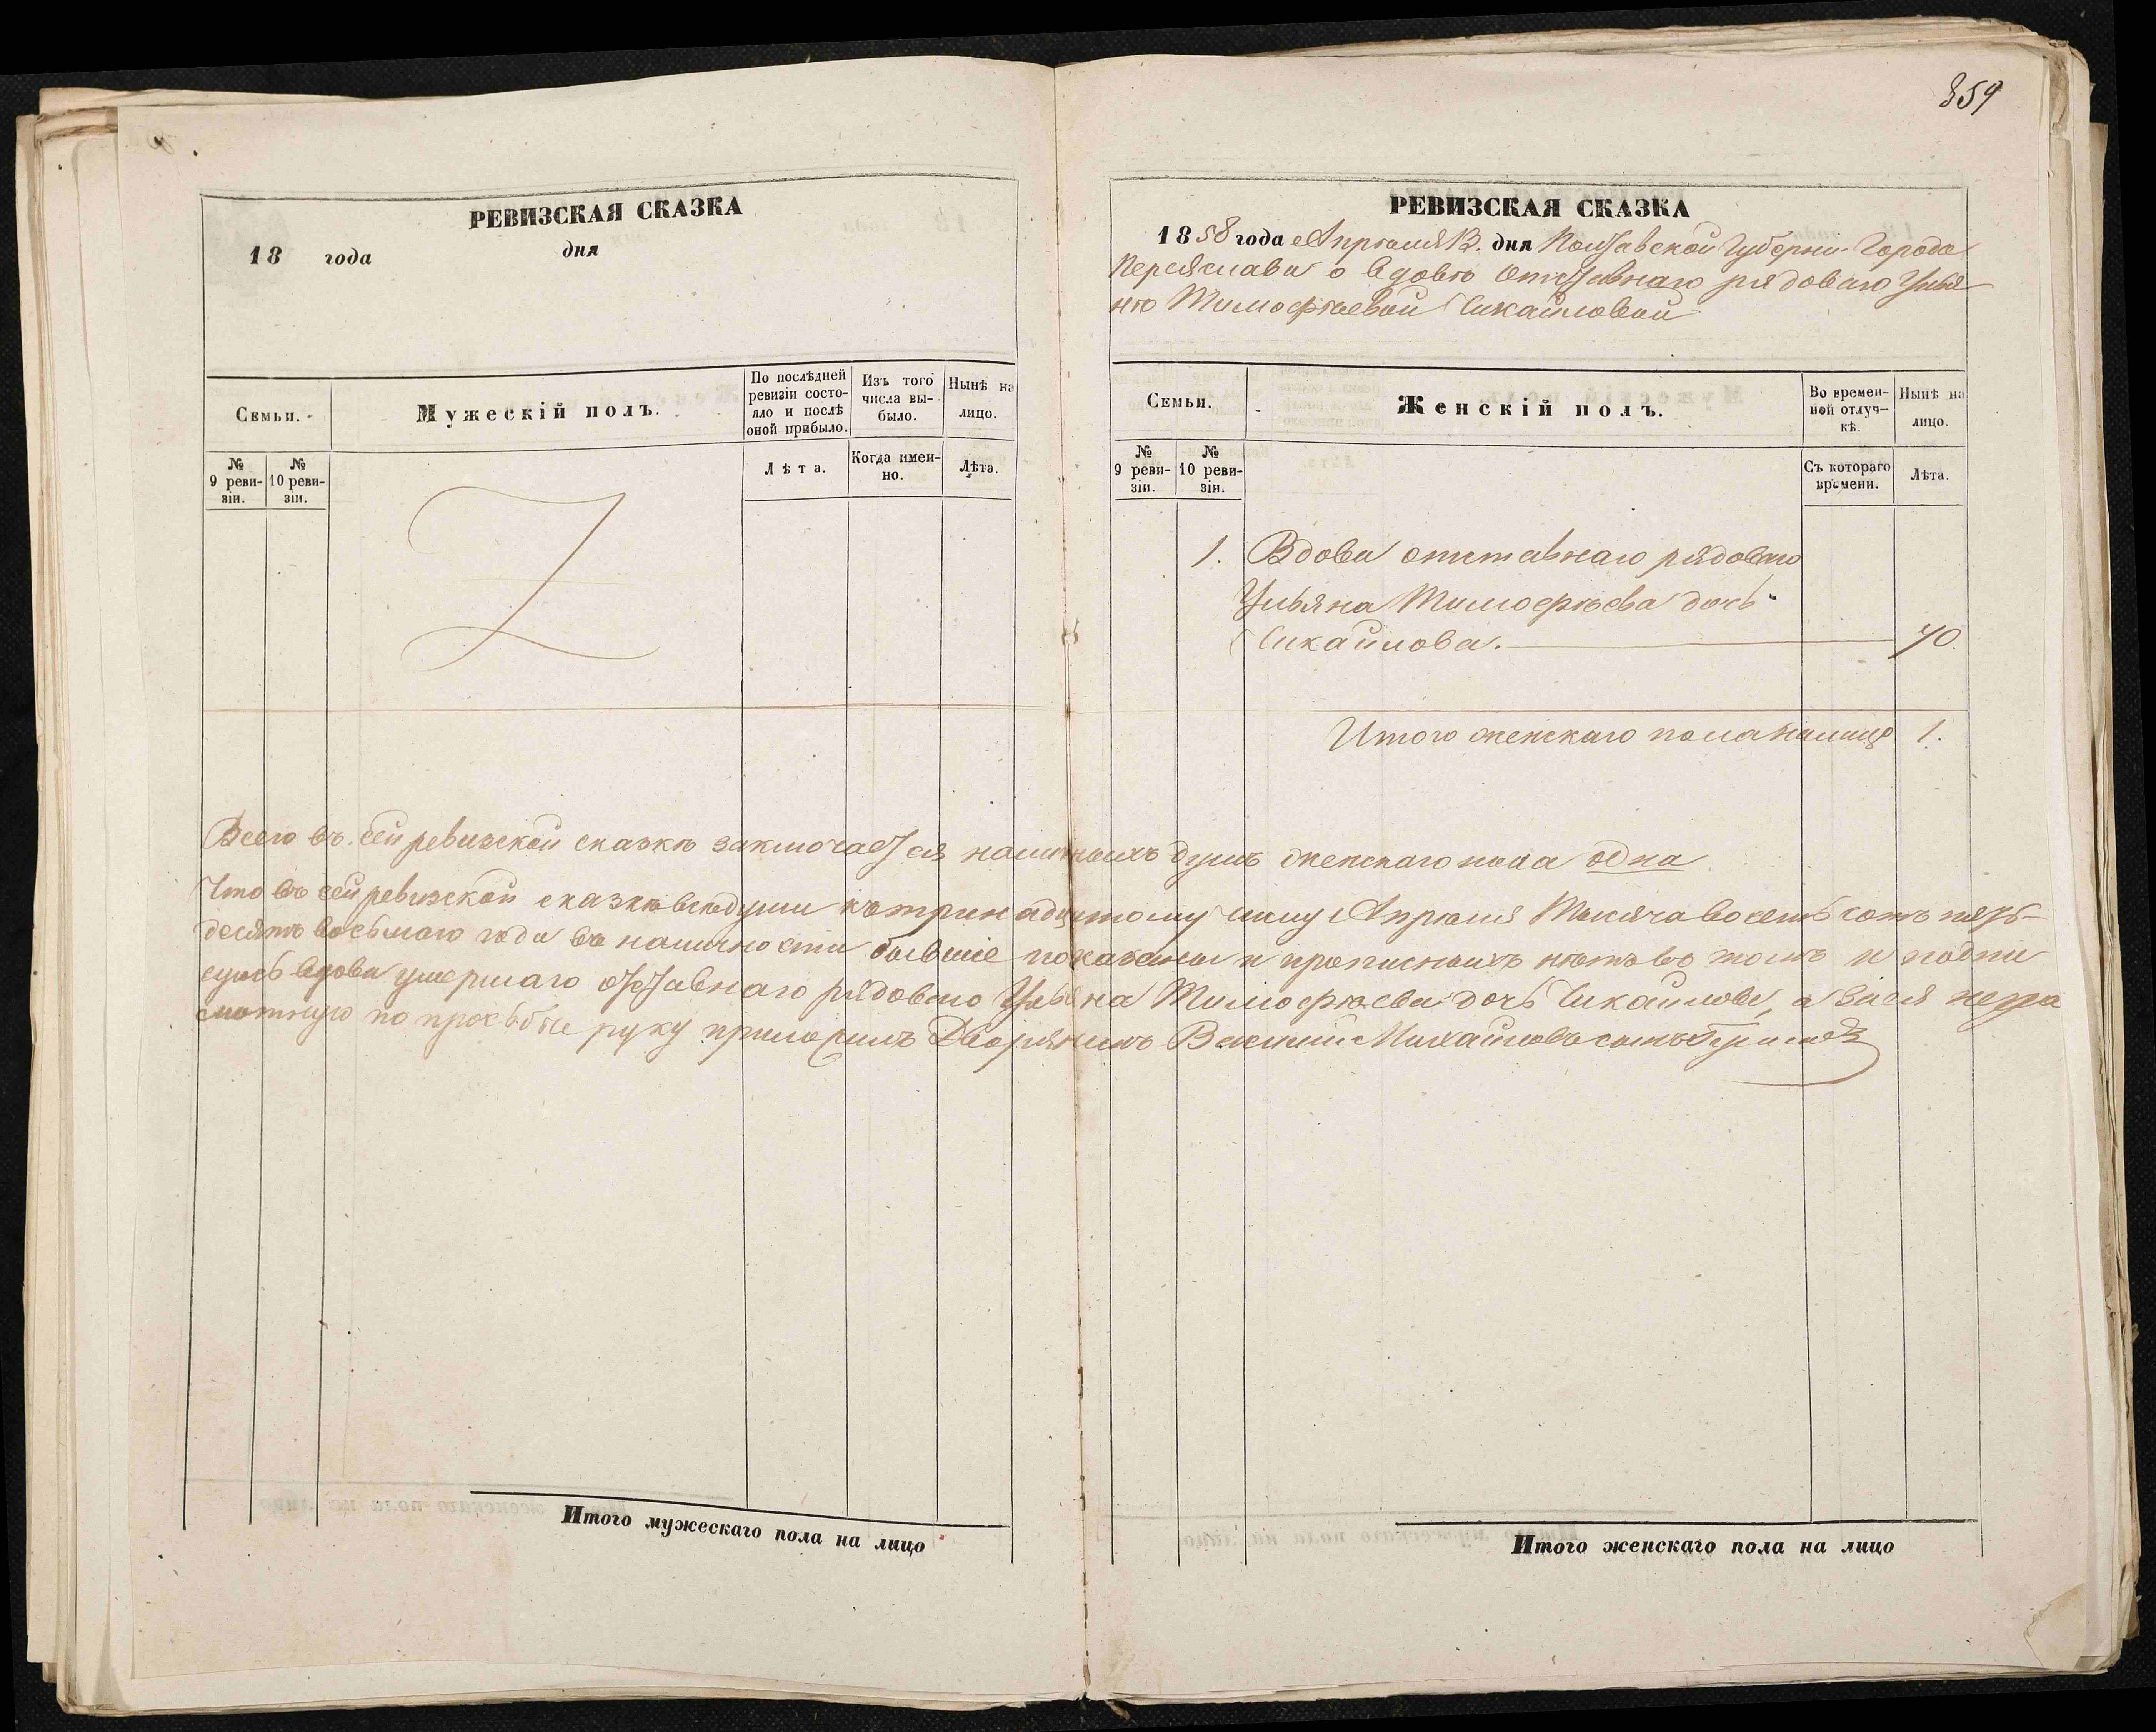 859
РЕВИЗСКАЯ СКАЗКА
18 года дня
Семьи.
Мужескій полъ.
По послѣдней ревизіи состояло и послѣ оной прибыло.
Изъ того числа выбыло.
Нынѣ на лицо.
№ 9 ревизіи.
№ 10 ревизіи.
Лѣта.
Когда именно.
Лѣта.
РЕВИЗСКАЯ СКАЗКА
1858 года Апрѣля 13. дня Полтавской Губерніи Города
Переяслава о вдовѣ отставнаго рядоваго Улья
нѣ Тимофѣевой Чикайловой
Семьи.
Женскій полъ.
Во временной отлучкѣ.
Нынѣ на лицо.
№ 9 ревизіи.
№ 10 ревизіи.
Съ котораго времени.
Лѣта.
1. Вдова отставнаго рядоваго
Ульяна Тимофѣева дочь
Чикайлова. 70.
Итого женскаго пола налицо 1.
Всего въ сей ревизской сказкѣ заключается наличныхъ душъ женскаго пола одна
Что въ сей ревизской сказкѣ всѣ души къ тринадцатому числу Апрѣля Месяча восемьсотъ пять-
десятъ восьмаго года въ наличности бывшіе показаны и прописныхъ нѣтъ въ томъ и подпи
суюсь вдова умершаго отставнаго рядоваго Ульяна Тимофѣева дочь Чикайлова, а за нея негра
мотную по прозьбѣ ея руку приложилъ Дворянинъ Василий Михайловъ сынъ
Итого мужескаго пола на лицо
Итого женскаго пола на лицо